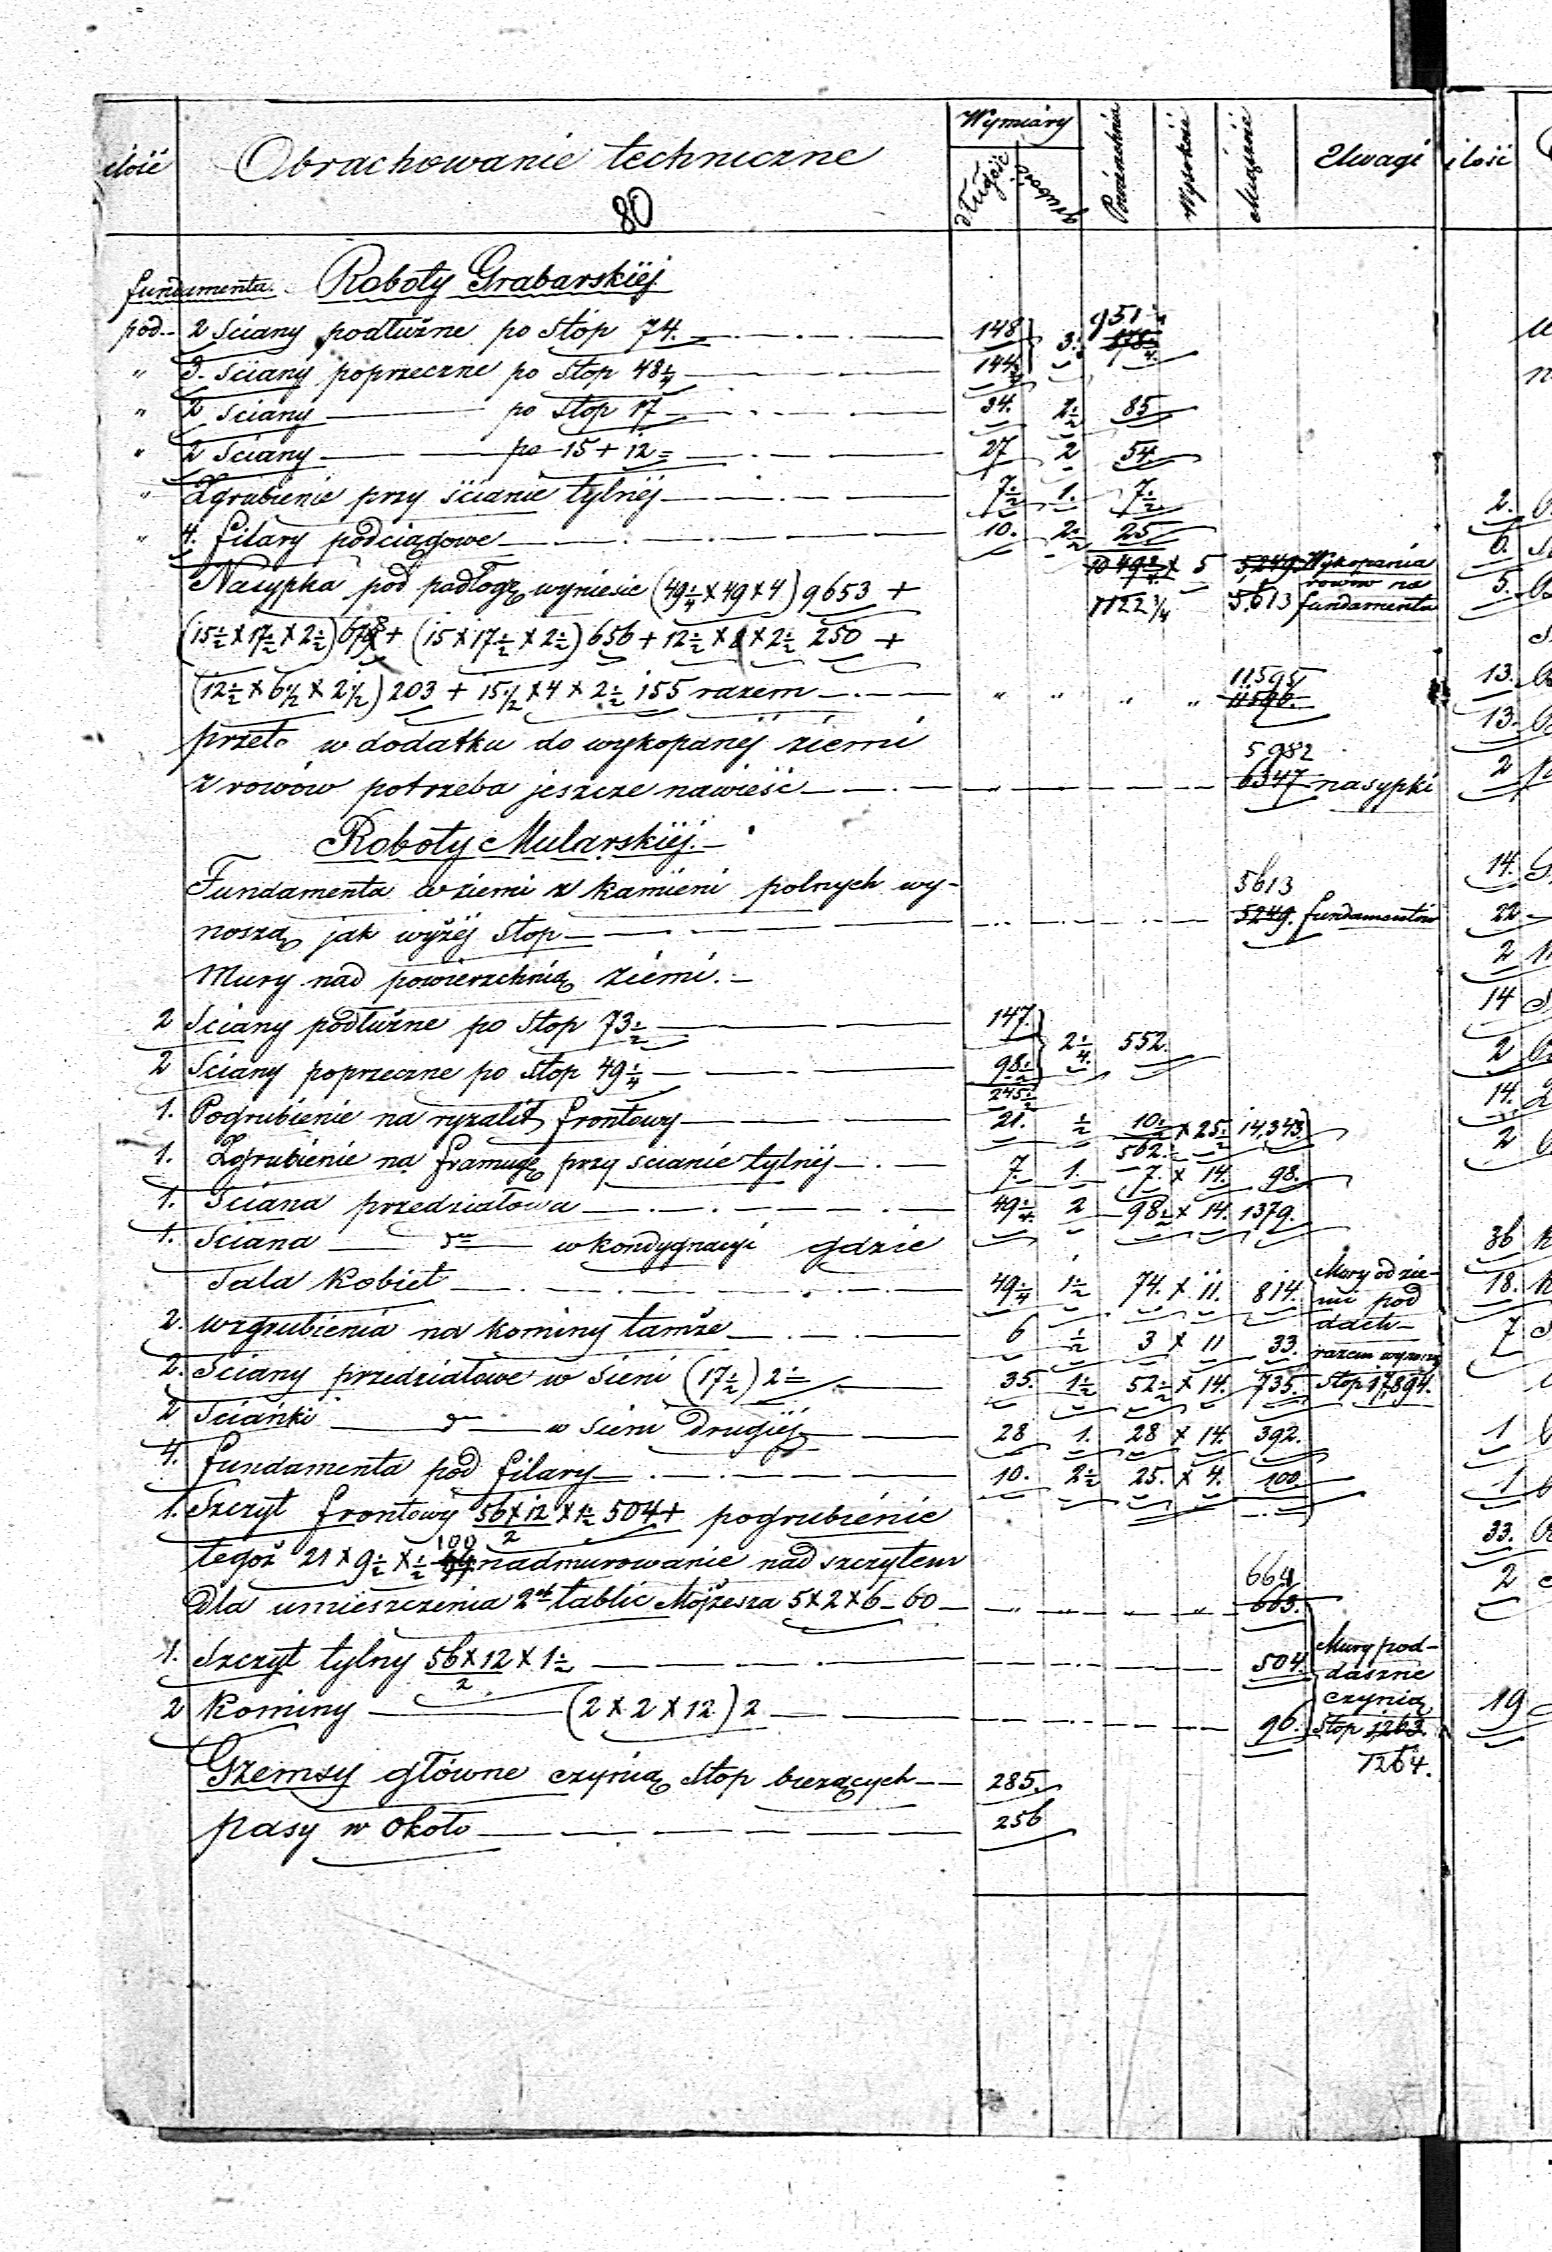 ilość Obrachowanie techniczne Wymiary długość grubość Powierzchnia Wysokość Miąższość Uwagi ilość
80
fundamenta. Roboty Grabarskiéj
pod 2 Sciany podłużne po Stóp 74. 148 3. 951
" 3. Sciany poprzeczne po Stop 48 1/4 144 3/4
" 2 Sciany po Stop 17 34. 2 1/2 85
" 2 Sciany po 15 + 12 = 27 2 54.
" Zgrubienie przy ścianie tylnéj 7 1/2 1. 7 1/2
" 4. filary podciągowe 10. 2 1/2 25
1049 3/4 x 5 5,249. Wykopania
rowow na
Nasypka pod padłogę wyniesie (49 1/4 x 49 x 4) 9653 + 1122 3/4 5,613 fundamenta
(15 1/2 x 17 1/2 x 2 1/2) 678 + (15 x 17 1/2 x 2 1/2) 656 + 12 1/2 x 8 x 2 1/2 250 +
(12 1/2 x 6 1/2 x 2 1/2) 203 + 15 1/2 x 4 x 2 1/2 155 razem " " " " 11,595
11596.
przeto w dodatku do wykopanéj ziemi 5982
z rowów potrzeba jeszcze nawieść 6347 nasypki
Roboty Mularskiéj.
Fundamenta w ziemi z kamieni polnych wy- 5613
noszą jak wyżéj Stop 5249. fundamentów
Mury nad powierzchnią ziemi.
2 Sciany podłużne po Stop 73 1/2 147. 2 1/4 552.
2 Sciany poprzeczne po Stop 49 1/4 98 1/2
245 1/2
1. Pogrubienie na ryzalit frontowy 21. 1/2 10. x 25 1/2 14,343.
562.
1. Zgrubienie na framugę przy scianie tylnéj 7. 1. 7. x 14. 98.
1. Sciana przedziałowa 49 1/4 2 98 1/2 x 14. 1379.
1. Sciana dto w kondygnacyi gdzie
Sala Kobiet 49 1/4 1 1/2 74. x 11. 814. Mury od zie-
mi pod
dach
2. wzgrubienia na kominy tamże 6 1/2 3 x 11 33. razem wynoszą
2. Sciany przedziałowe w Sieni (17 1/2) 2 = 35. 1 1/2 52 1/2 x 14. 735. Stop 17,894.
2 Scianki dto w Sieni drugiéj 28 1. 28 x 14. 392.
4. fundamenta pod filary 10. 2 1/2 25. x 4. 100.
1. Szczyt frontowy 56 x 12/2 x 1 1/2 504 + pogrubienie
tegoż 21 x 9 1/2 x 1/2 100 nadmurowanie nad szczytem 664
dla umieszczenia 2ch tablic Mojżesza 5 x 2 x 6 - 60 " " " " 665.
1. Szczyt tylny 56 x 12/2 x 1 1/2 504. Mury pod-
daszne
czynią
2 Kominy (2 x 2 x 12) 2 96. Stop 1263.
1264.
Gzemsy główne czynią Stop bieżących 285.
pasy w około 256
2.
6.
5.
13.
13.
2
14.
22
2
14
2
14.
2
36
18.
7
1
1
33.
2
19